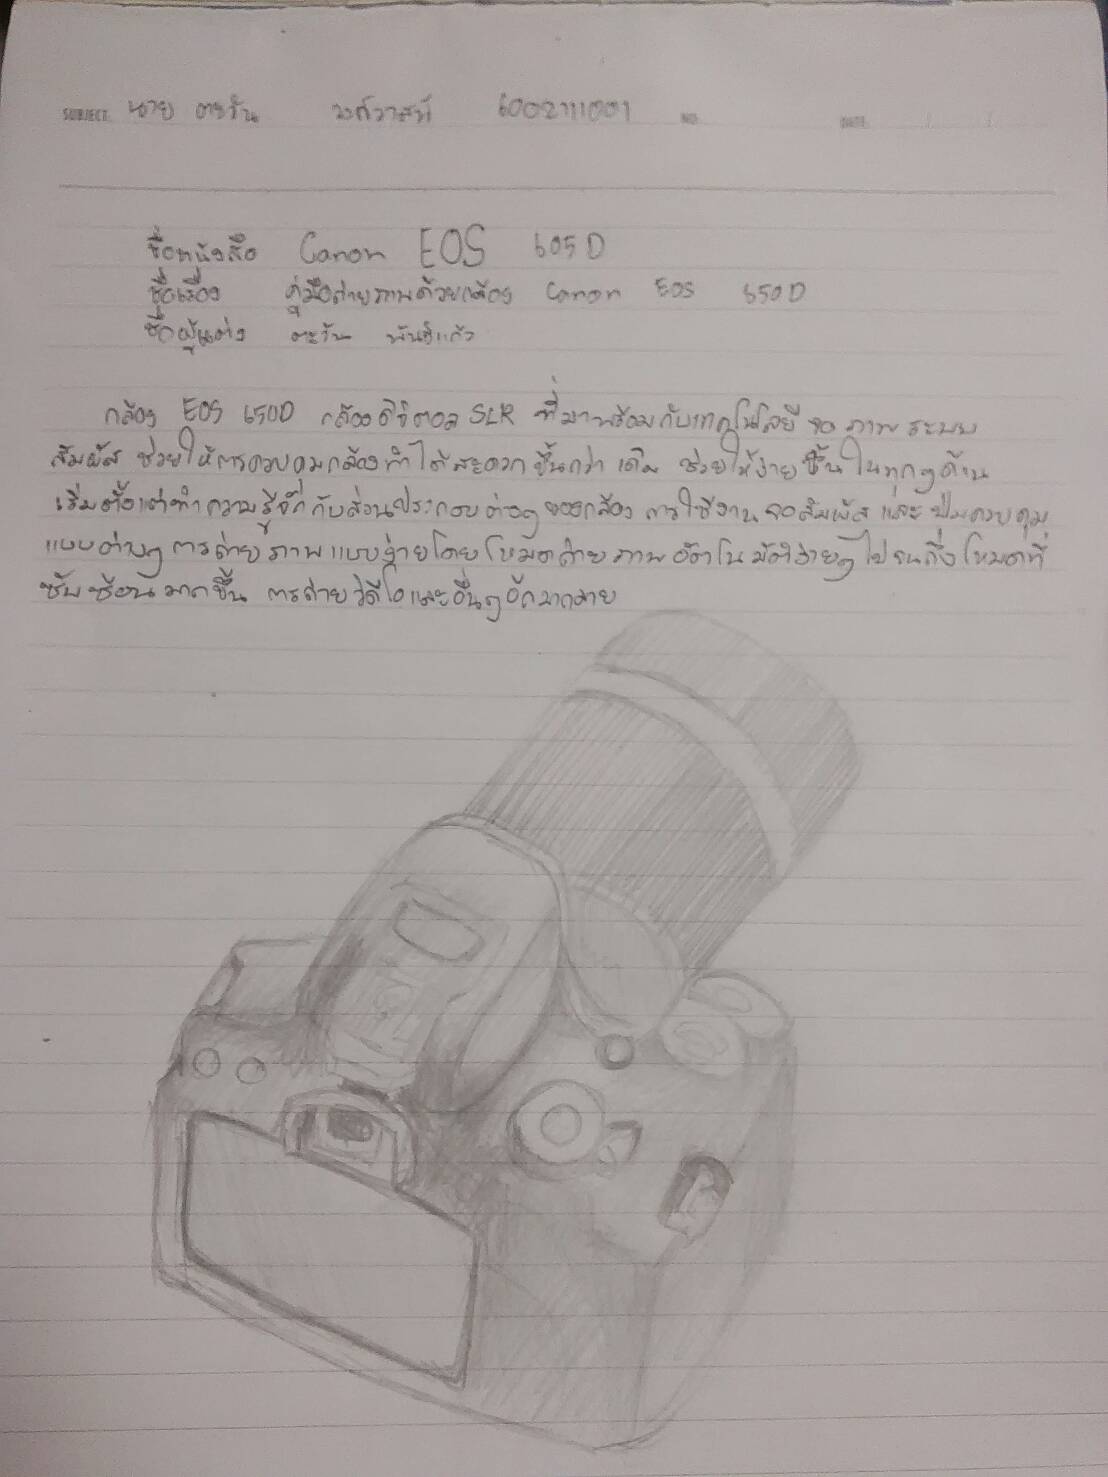 SUBJECT นาย ตะวัน วงศ์วาสท์ 6002111001 NO. DATE / /
ชื่อหนังสือ Canon EOS 605D
ชื่อเรื่อง คู่มือถ่ายภาพด้วยกล้อง Canon EOS 650D
ชื่อผู้แต่ง ตะวัน พันธ์แก้ว
กล้อง EOS 650D กล้องดิจิตอล SLR ที่มาพร้อมกับเทคโนโลยี จอ ภาพ ระบบ
สัมผัส ช่วยให้การควบคุมกล้องทำได้สะดวก ขึ้นกว่า เดิม ช่วยให้ง่าย ขึ้น ในทุกๆด้าน
เริ่มตั้งแต่ทำความรู้จักกับส่วนประกอบต่างๆ ของกล้อง การใช้งาน จอสัมผัส และ ปุ่มควบคุม
แบบต่างๆ การถ่ายภาพแบบง่ายโดยโหมดถ่ายภาพอัตโนมัติง่ายๆ ไปจนถึงโหมดที่
ซับซ้อนมากขึ้น การถ่ายวิดีโอและอื่นๆอีกมากมาย